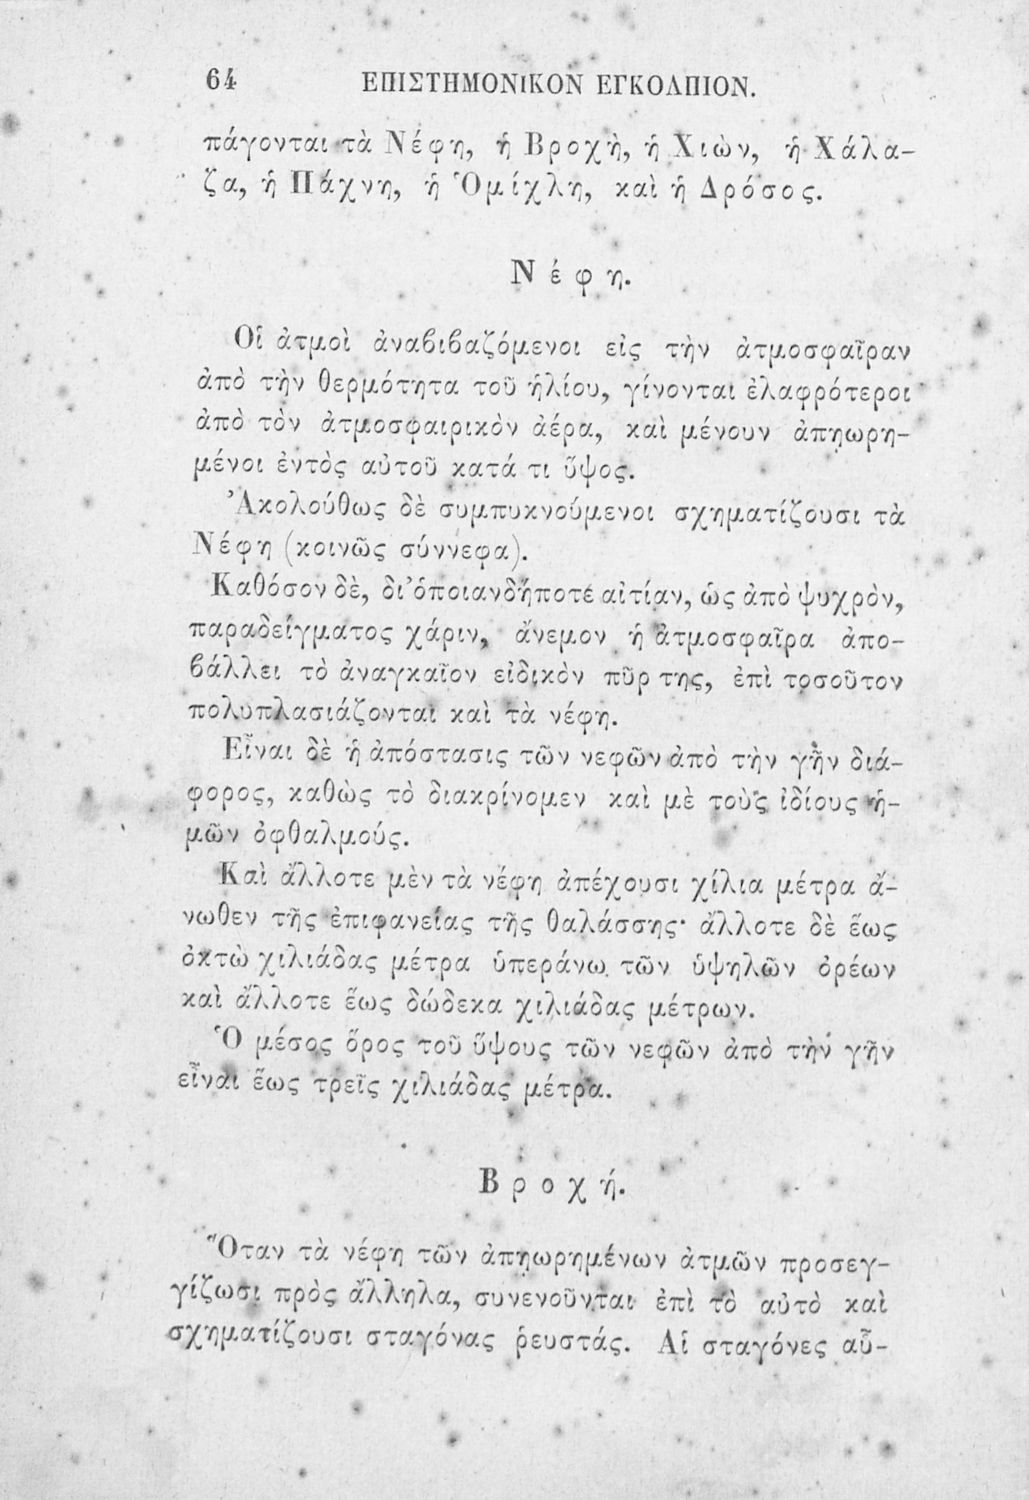 64 ΕΠΙΣΤΗΜΟΝΙΚΟΝ ΕΓΚΟΛΠΙΟΝ.
πάγονται τὰ Νέφη, ἡ Βροχὴ, ἡ Χιὼν, ἡ Χάλα-
ζα, ἡ Πάχνη, ἡ Ὁμίχλη, καὶ ἡ Δρόσος.
Νέφη.
Οἱ ἀτμοὶ ἀναβιβαζόμενοι εἰς τὴν ἀτμοσφαῖραν
ἀπὸ τὴν θερμότητα τοῦ ἡλίου, γίνονται ἐλαφρότεροι
ἀπὸ τὸν ἀτμοσφαιρικὸν ἀέρα, καὶ μένουν ἀπῃωρη-
μένοι ἐντὸς αὐτοῦ κατά τι ὕψος.
Ἀκολούθως δὲ συμπυκνούμενοι σχηματίζουσι τὰ
Νέφη (κοινῶς σύννεφα).
Καθόσον δὲ, δι’ ὁποιανδήποτε αἰτίαν, ὡς ἀπὸ ψυχρὸν,
παραδείγματος χάριν, ἄνεμον ἡ ἀτμοσφαῖρα ἀπο-
βάλλει τὸ ἀναγκαῖον εἰδικὸν πῦρ της, ἐπὶ τοσοῦτον
πολυπλασιάζονται καὶ τὰ νέφη.
Εἶναι δὲ ἡ ἀπόστασις τῶν νεφῶν ἀπὸ τὴν γῆν διά-
φορος, καθὼς τὸ διακρίνομεν καὶ μὲ τοὺς ἰδίους ἡ-
μῶν ὀφθαλμούς.
Καὶ ἄλλοτε μὲν τὰ νέφη ἀπέχουσι χίλια μέτρα ἄ-
νωθεν τῆς ἐπιφανείας τῆς θαλάσσης· ἄλλοτε δὲ ἕως
ὀκτὼ χιλιάδας μέτρα ὑπεράνω τῶν ὑψηλῶν ὀρέων
καὶ ἄλλοτε ἕως δώδεκα χιλιάδας μέτρων.
Ὁ μέσος ὅρος τοῦ ὕψους τῶν νεφῶν ἀπὸ τὴν γῆν
εἶναι ἕως τρεῖς χιλιάδας μέτρα.
Βροχή.
Ὅταν τὰ νέφη τῶν ἀπῃωρημένων ἀτμῶν προσεγ-
γίζωσι πρὸς ἄλληλα, συνενοῦνται ἐπὶ τὸ αὐτὸ καὶ
σχηματίζουσι σταγόνας ῥευστάς. Αἱ σταγόνες αὗ-